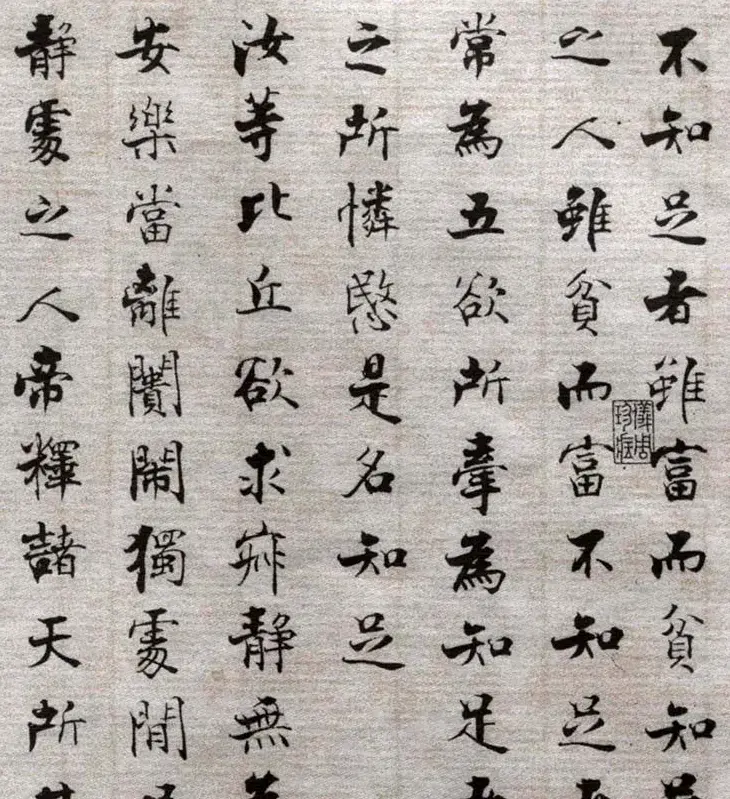 不知足者雖富而貧知
之人雖貧而富不知足
常為五欲所牽為知足
之所憐愍是名知足
汝等比丘欲求寂静無
安樂當離闠閙獨處閒
静處之人帝釋諸天所
儀周珍藏